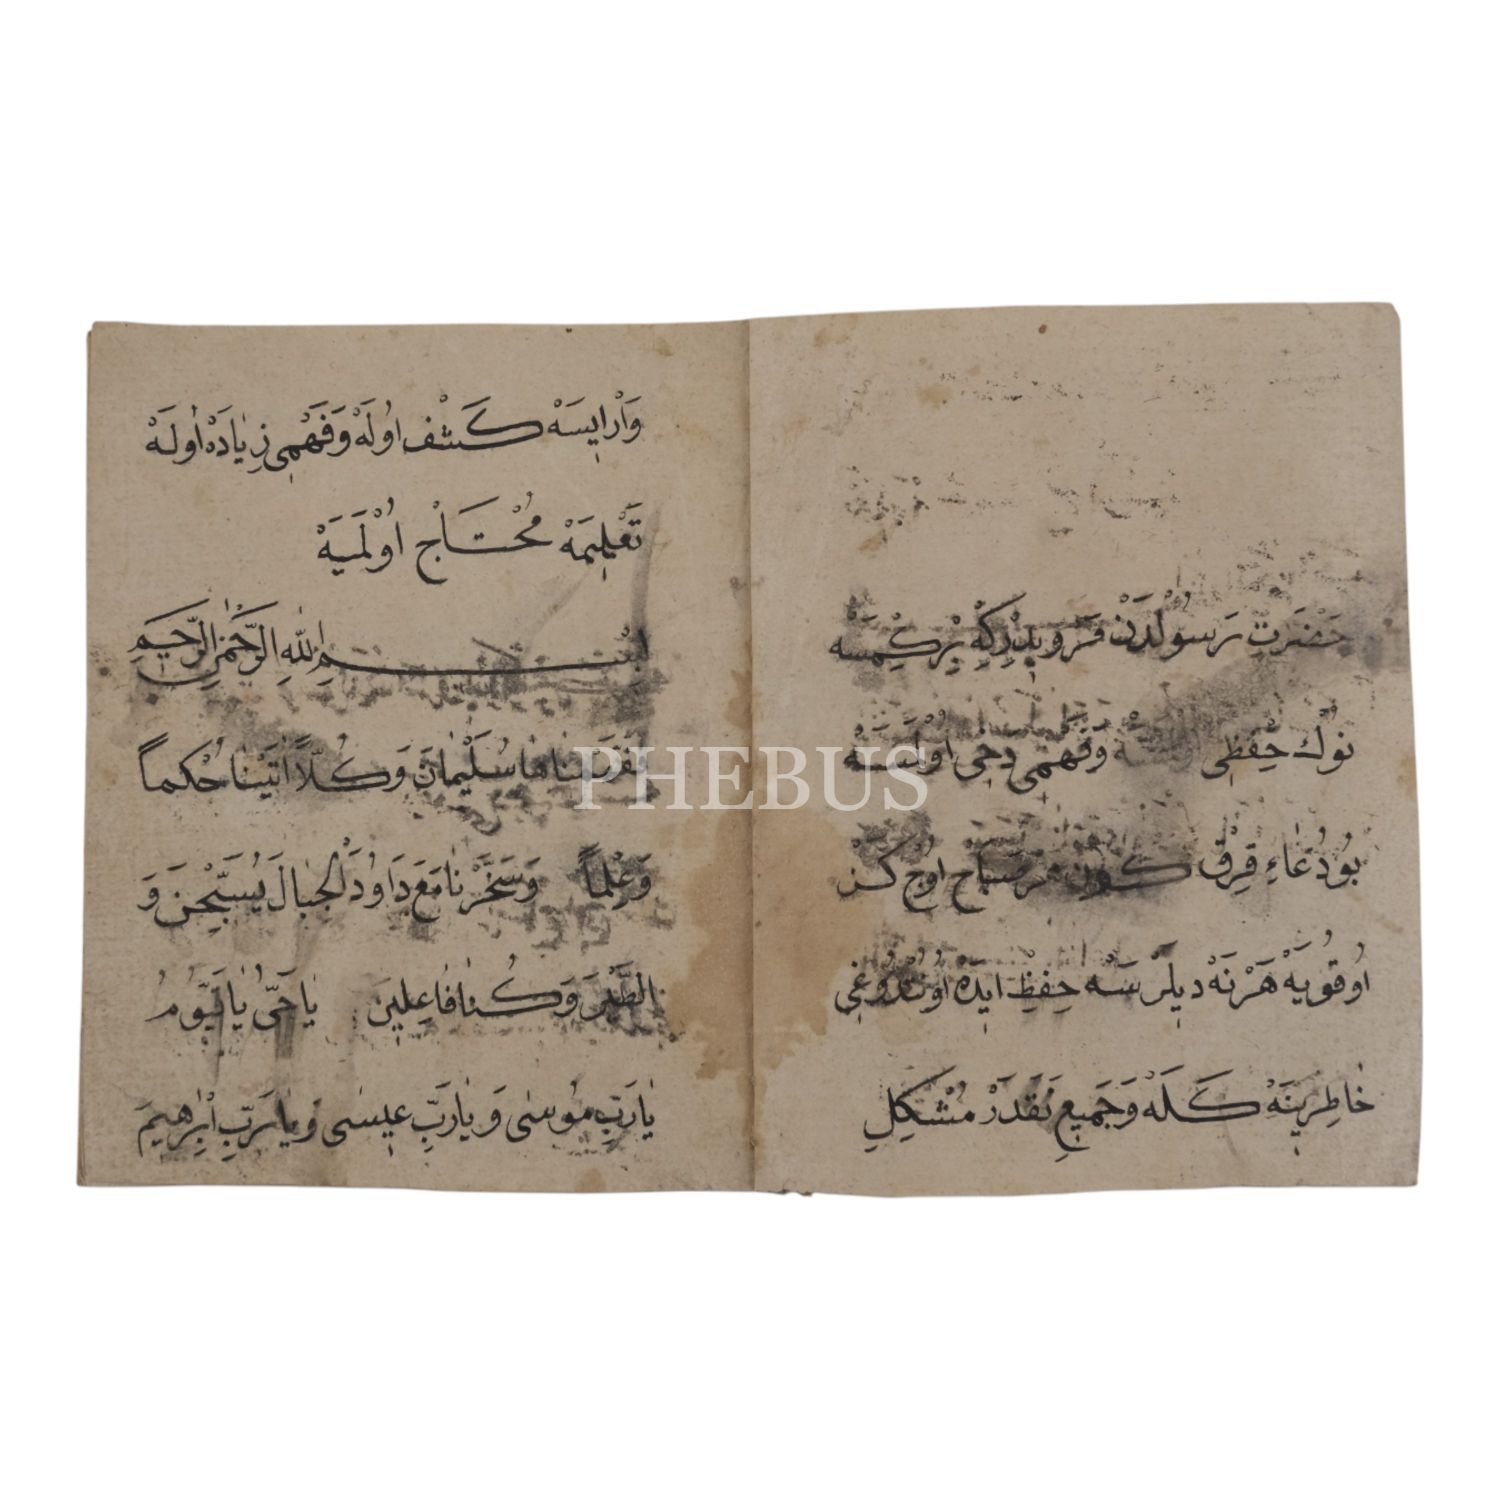 حَضْرَتِ رَسُولْدَنْ مَرْوِيدِرْكِهْ بِرْكِمْسَهْ
نُوكْ حِفْظِى وَفَهْمِى دَخِى اُولْمَسَهْ
بُودُعَاءِ قِرْقْ كُونْ هَرْصَبَاحْ اُوچْ كَرَّ
اُوقُويَهْ هَرْنَهْ دِيلَرْسَهْ حِفِظْ ايدَهْ اُونُتْدُوغِى
خَاطِرِينَهْ كَلَهْ وَجَمِيعِ نَقَدَرْ مُشْكِلِ
وَارْايسَهْ كَشْف اُولَهْ وَفَهْمِى زِيَادَهْ اُولَهْ
تَعْلِيمَهْ مُحْتَاجْ اُولْمَيَهْ
بِسْمِ اللهِ الرَّحْمٰنِ الرَّحِيمِ
فَفَهَّمْنَاهَا سُلَيْمَانَ وَكُلًّا اٰتَيْنَا حُكْماً
وَعِلْماً وَسَخَّرْنَا مَعَ دَاوُدَ الْجِبَالَ يُسَبِّحْنَ وَ
الطَّيْرَ وَكُنَّا فَاعِلِينَ يَاحَىُّ يَاقَيُّومُ
يَارَبِّ مُوسٰى وَيَارَبِّ عِيسٰى وَيَارَبِّ اِبْرٰهِيمَ
PHEBUS